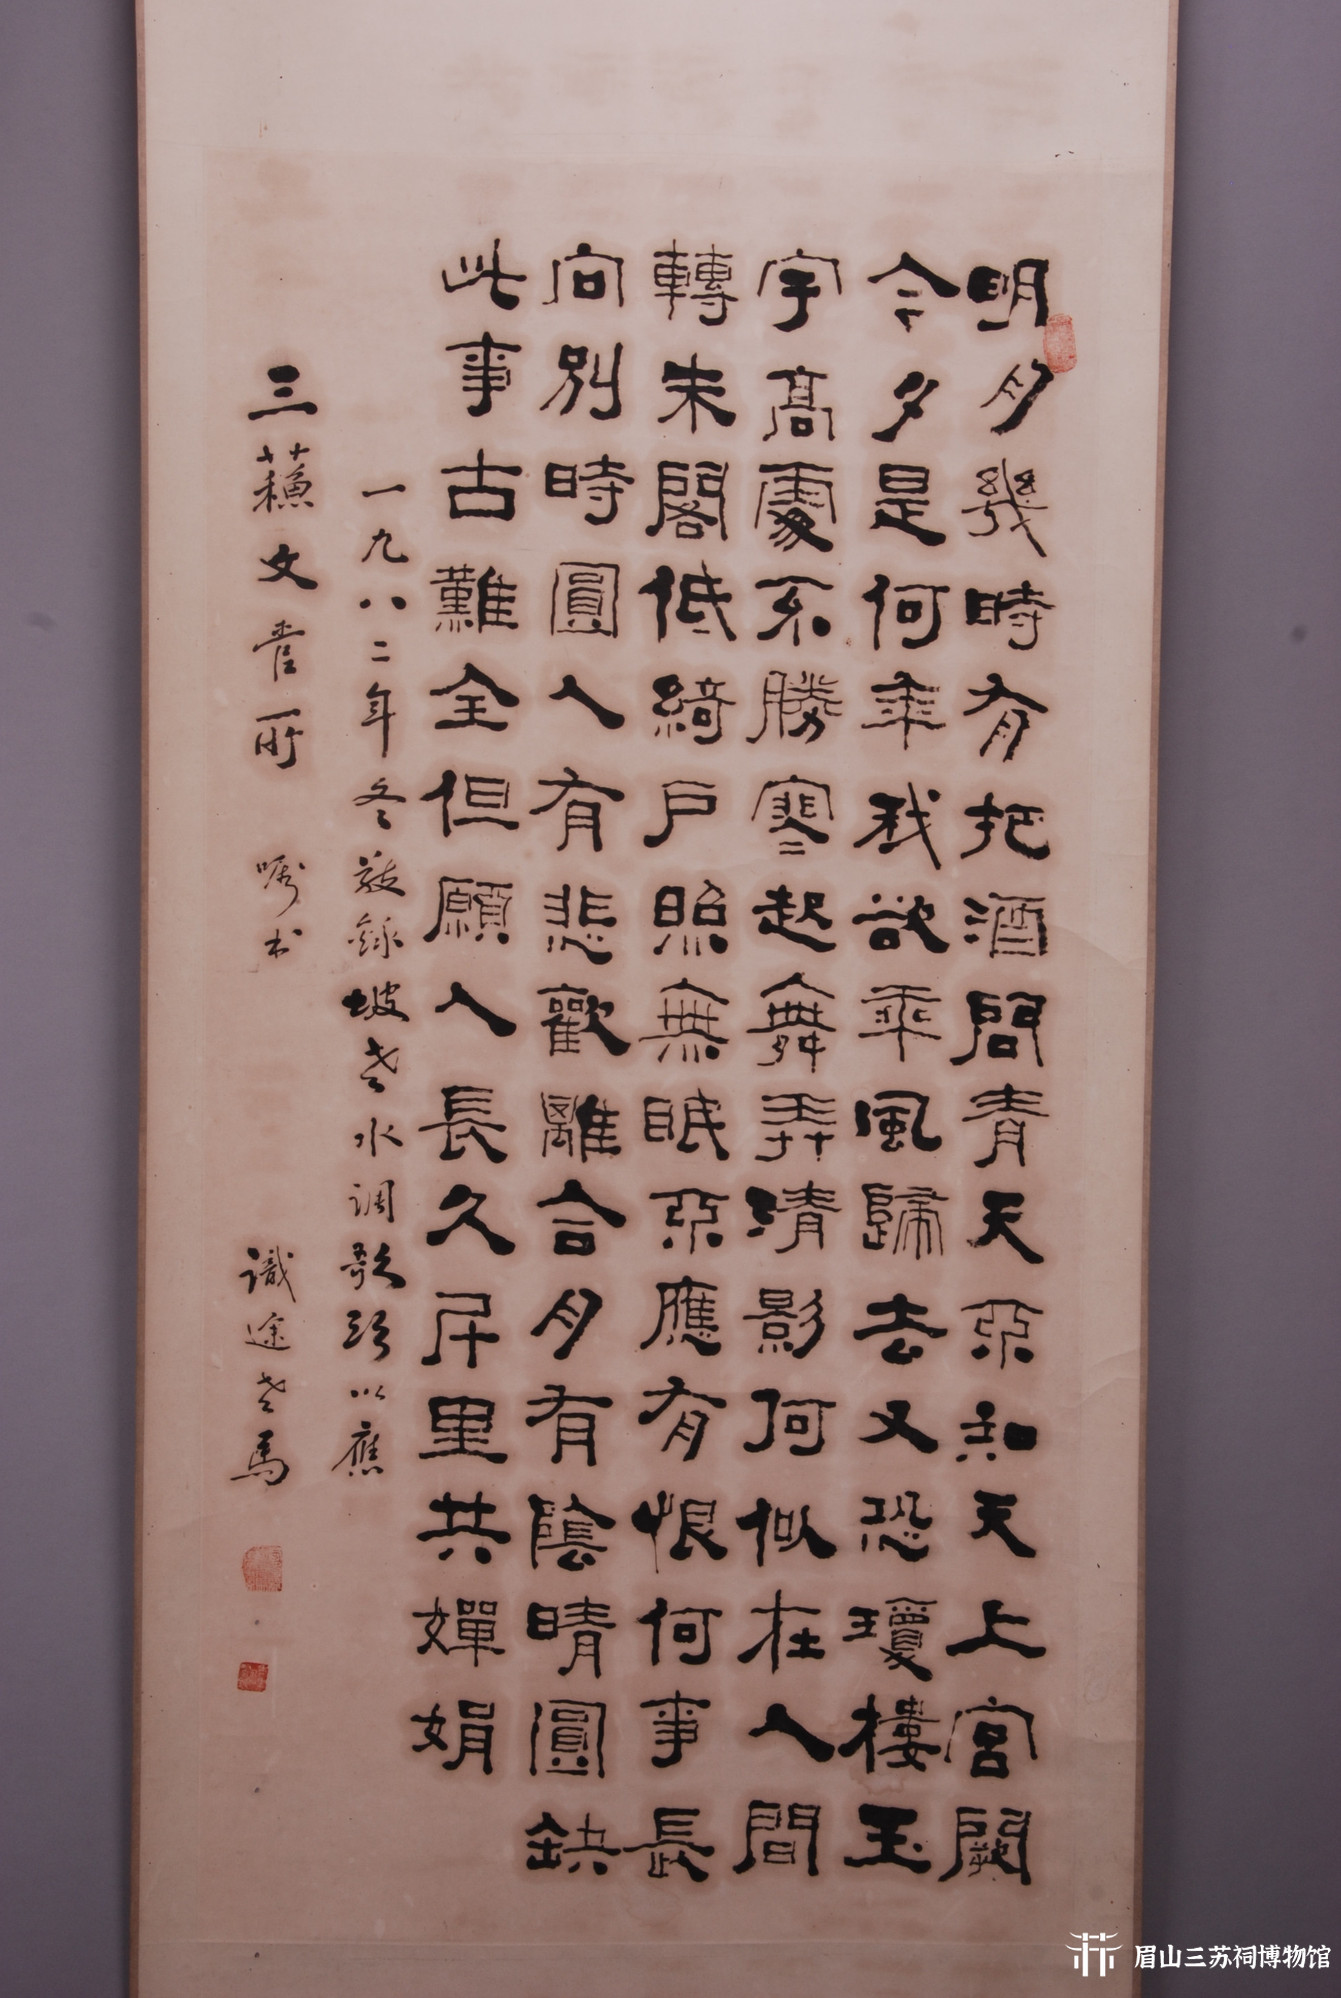 明月幾時有把酒問青天不知天上宮闕
今夕是何年我欲乘風歸去又恐瓊樓玉
宇高處不勝寒起舞弄清影何似在人間
轉朱閣低綺户照無眠不應有恨何事長
向別時圓人有悲歡離合月有陰晴圓缺
此事古難全但願人長久千里共嬋娟
一九八二年冬敬錄坡老水调歌頭以應
三蘇文管所 嘱书 識途老馬
眉山三苏祠博物馆